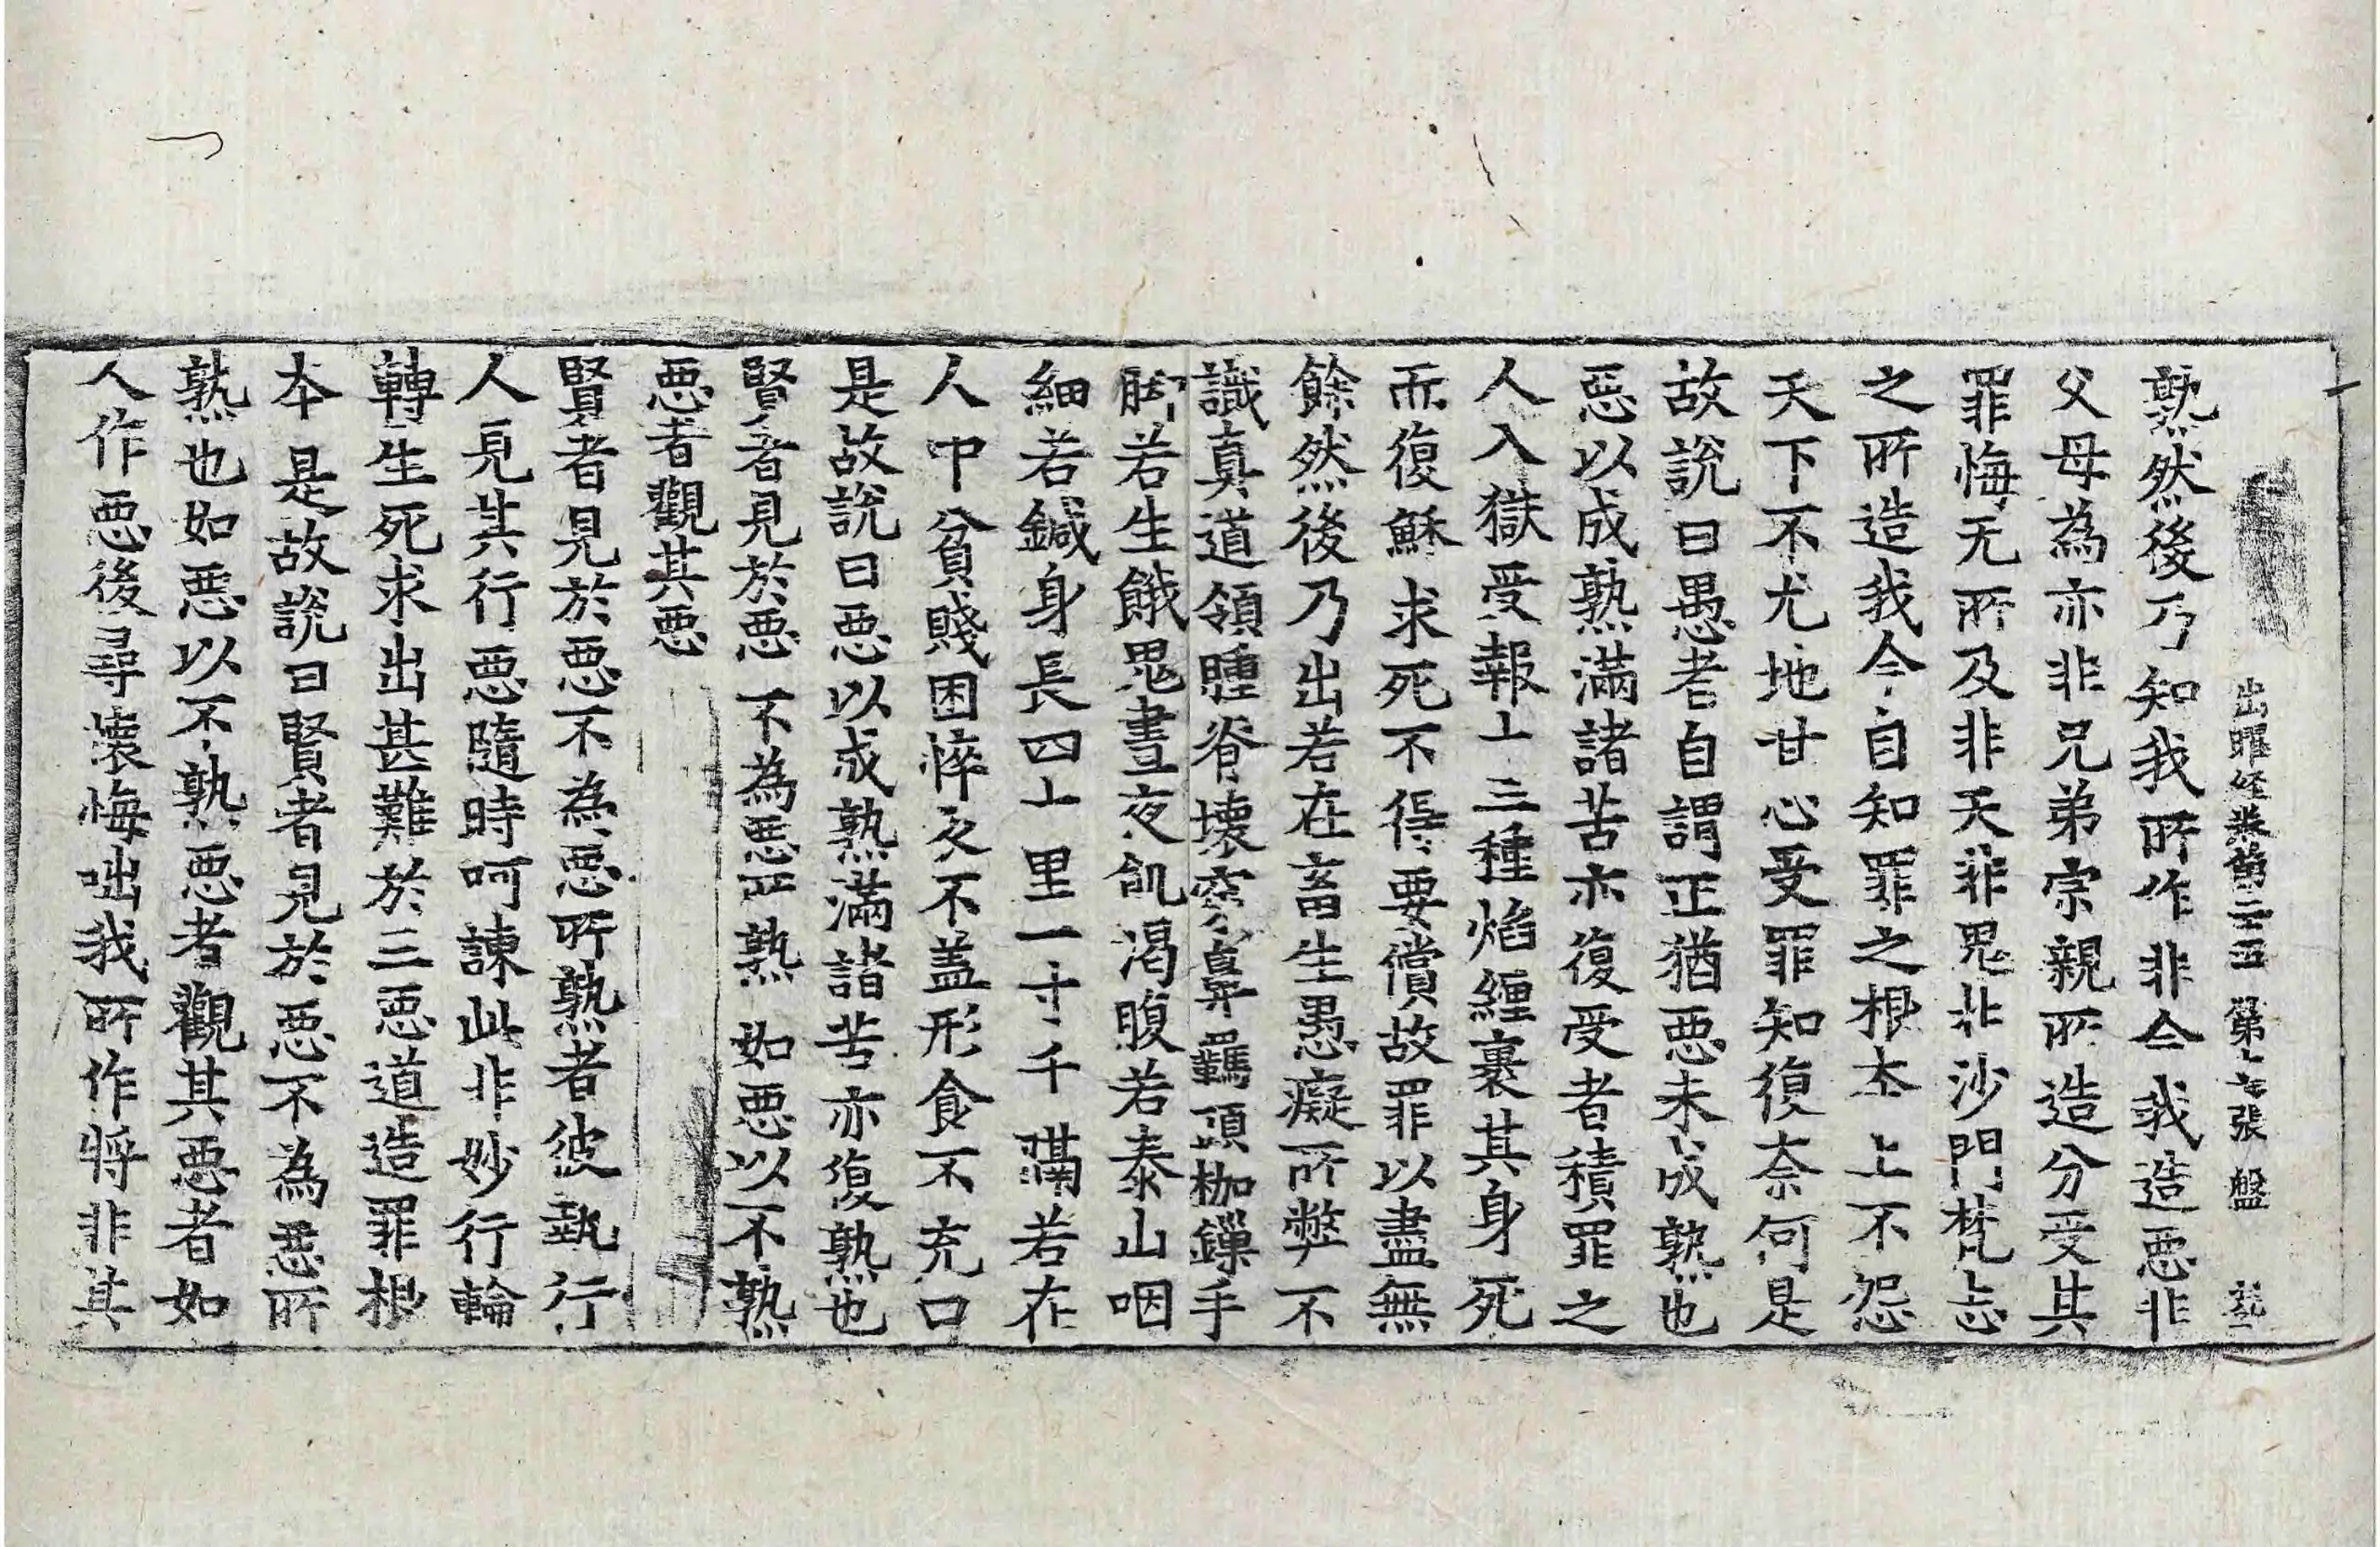 出曜経卷第二十五 第十七張 盤
熟然後乃知我所作非今我造惡非
父母為亦非兄弟宗親所造分受其
罪悔无所及非天非鬼非沙門梵志
之所造我今自知罪之根本上不怨
天下不尤地甘心受罪知復奈何是
故說曰愚者自謂正猶惡未成熟也
惡以成熟滿諸苦亦復受者積罪之
人入獄受報十三種焰纏裹其身死
而復穌求死不得要償故罪以盡無
餘然後乃出若在畜生愚癡所弊不
識真道領腫脊壞穿鼻羈頭枷鏁手
脚若生餓鬼晝夜飢渴腹若泰山咽
細若鍼身長四十里一寸千隔若在
人中貧賤困悴衣不盖形食不充口
是故說曰惡以成熟滿諸苦亦復熟也
賢者見於惡 不為惡所熟 如惡以不熟
惡者觀其惡
賢者見於惡不為惡所熟者彼執行
人見其行惡隨時呵諫此非妙行輪
轉生死求出甚難於三惡道造罪根
本是故說曰賢者見於惡不為惡所
熟也如惡以不熟惡者觀其惡者如
人作惡後尋壞悔咄我所作将非其